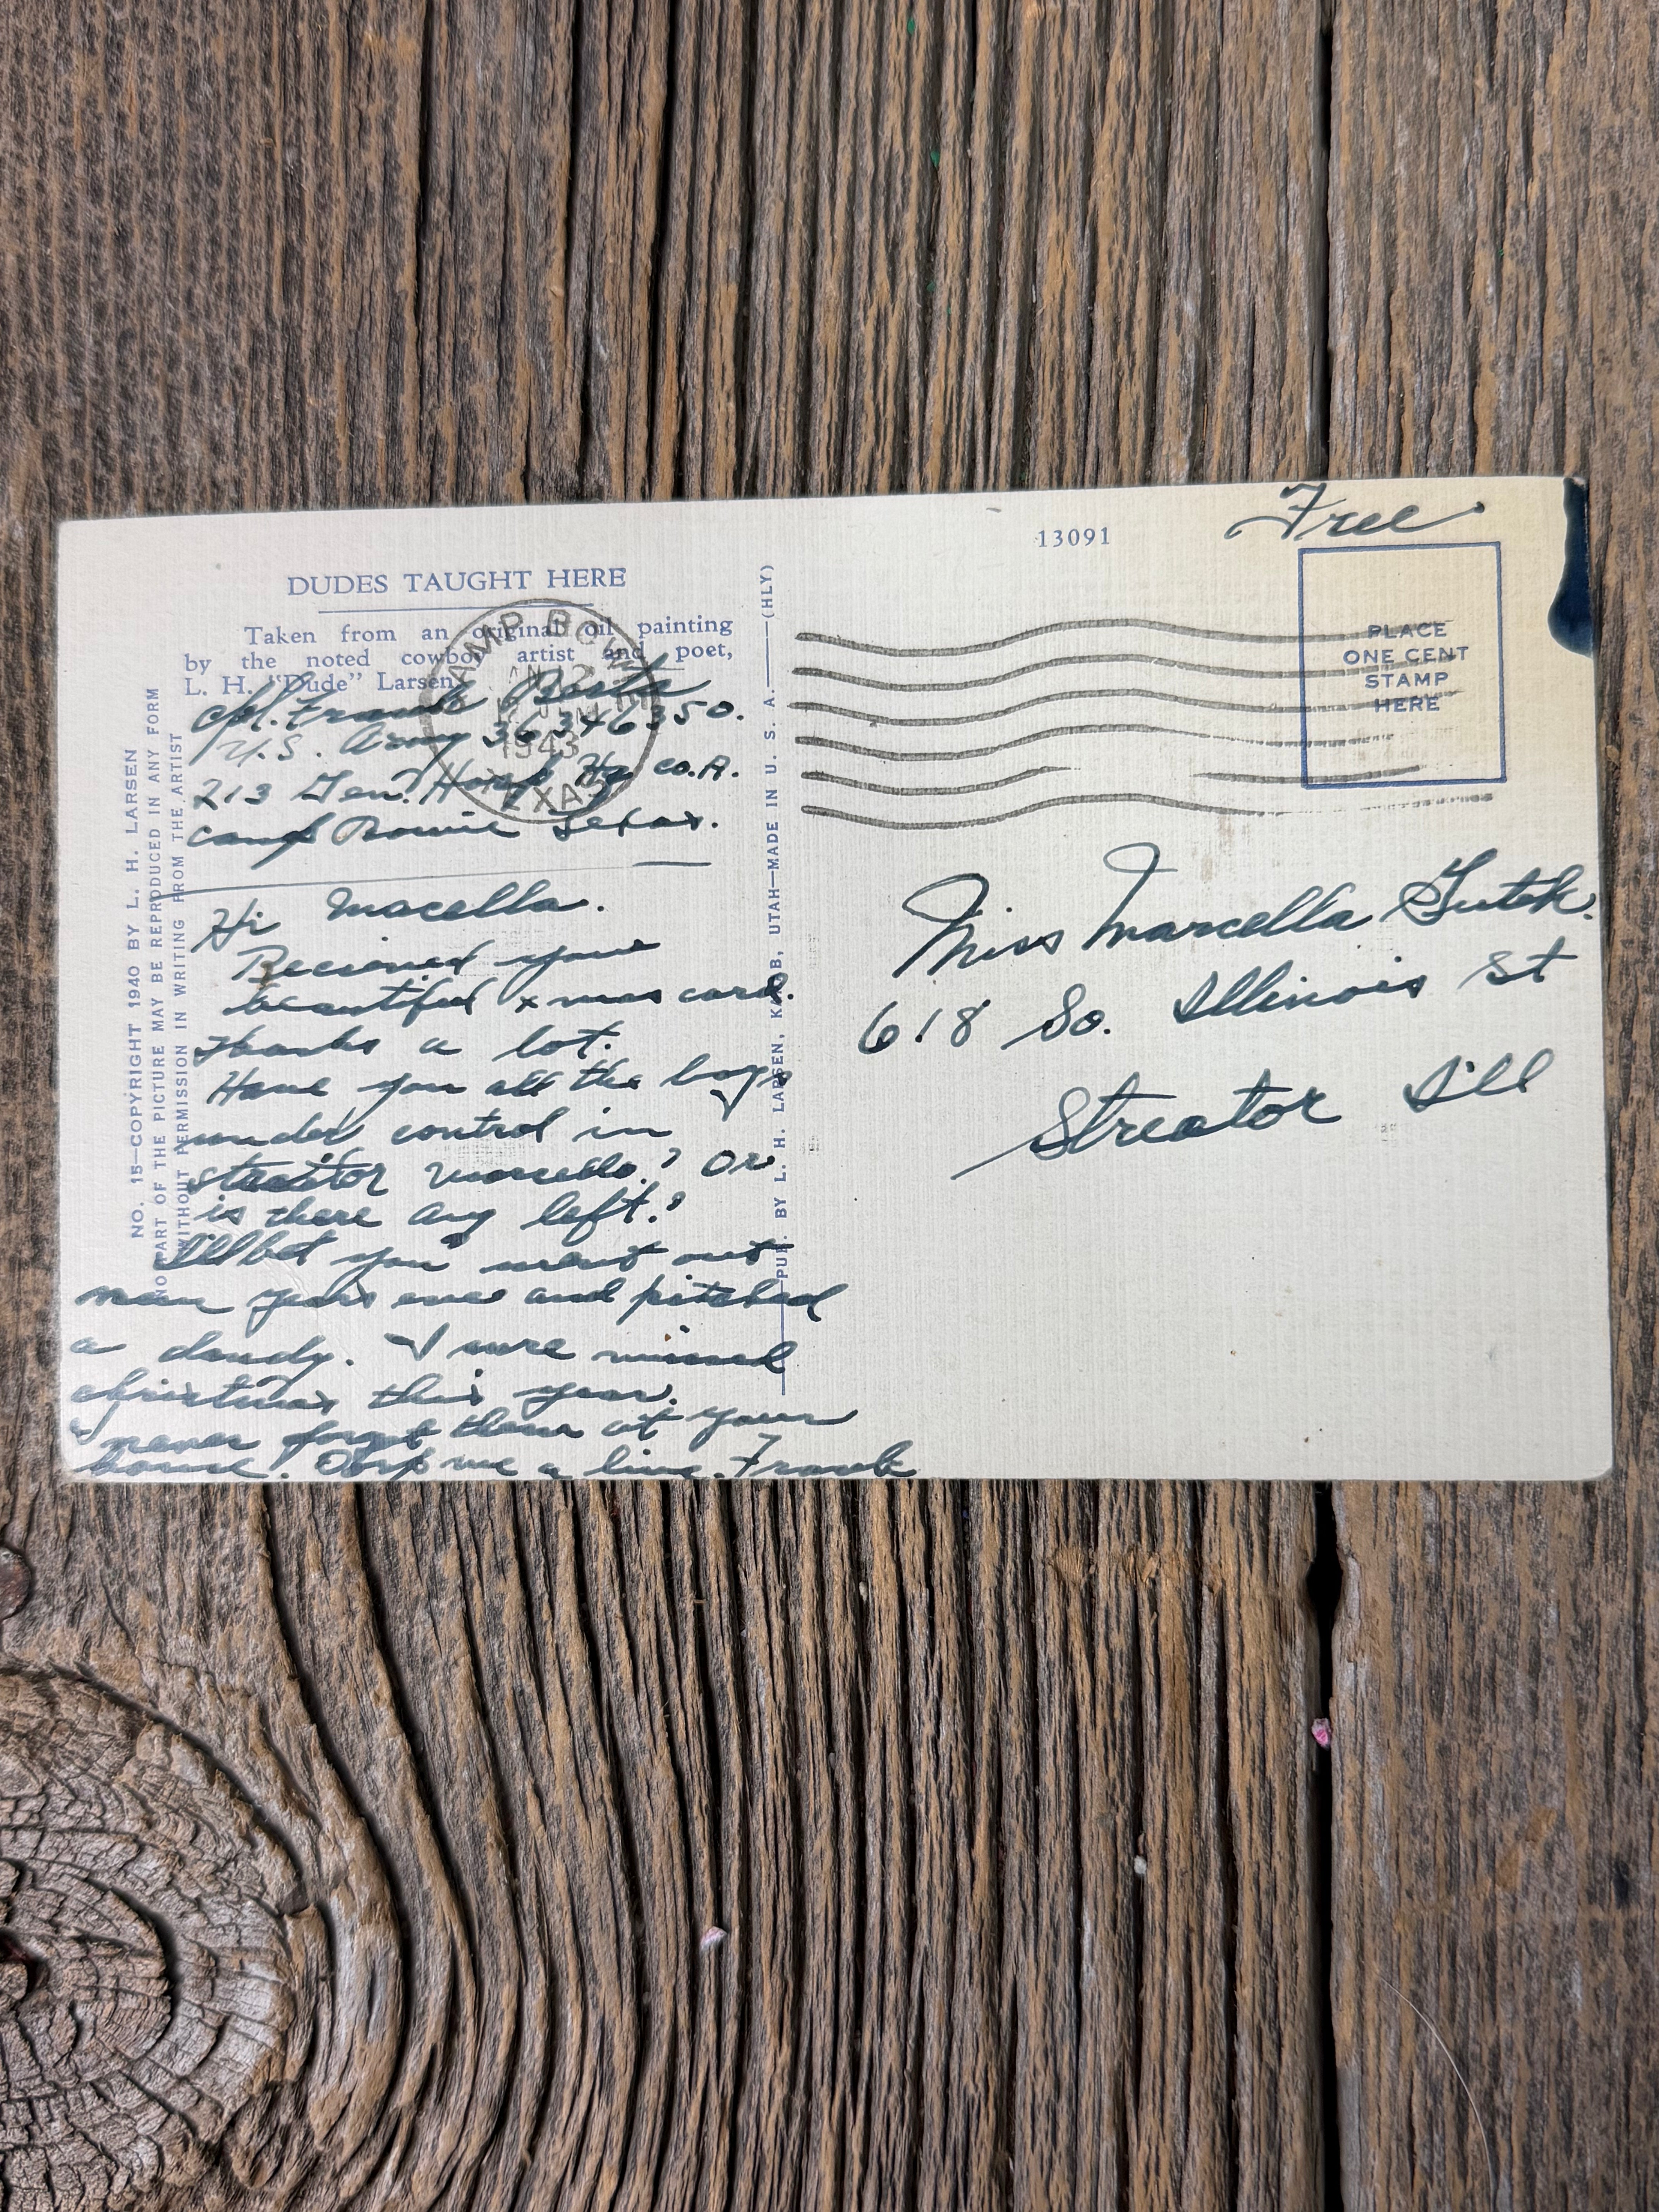 Free
13091
PLACE
ONE CENT
STAMP
HERE
DUDES TAUGHT HERE
Taken from an original oil painting
by the noted cowboy artist and poet,
L. H. "Dude" Larsen
CAMP BOWIE
JAN 12
1943
TEXAS
Cpl. Frank
U.S. Army 36346350.
213 Gen. Hosp Hq co.A.
camp Bowie Texas.
Hi Macella.
Recieved your
beautiful xmas card.
Thanks a lot.
Have you all the boys
under control in
streator Marcella? Or
is there any left?
I'll bet you went out
new years eve and pitched
a dandy. I sure missed
christmas this year.
I never forget them at your
house. Drop me a line. Frank
NO. 15—COPYRIGHT 1940 BY L. H. LARSEN
NO PART OF THE PICTURE MAY BE REPRODUCED IN ANY FORM
WITHOUT PERMISSION IN WRITING FROM THE ARTIST
PUB. BY L. H. LARSEN, KANAB, UTAH—MADE IN U. S. A.—(HLY)
Miss Marcella Gutek.
618 So. Illinois St
Streator Ill